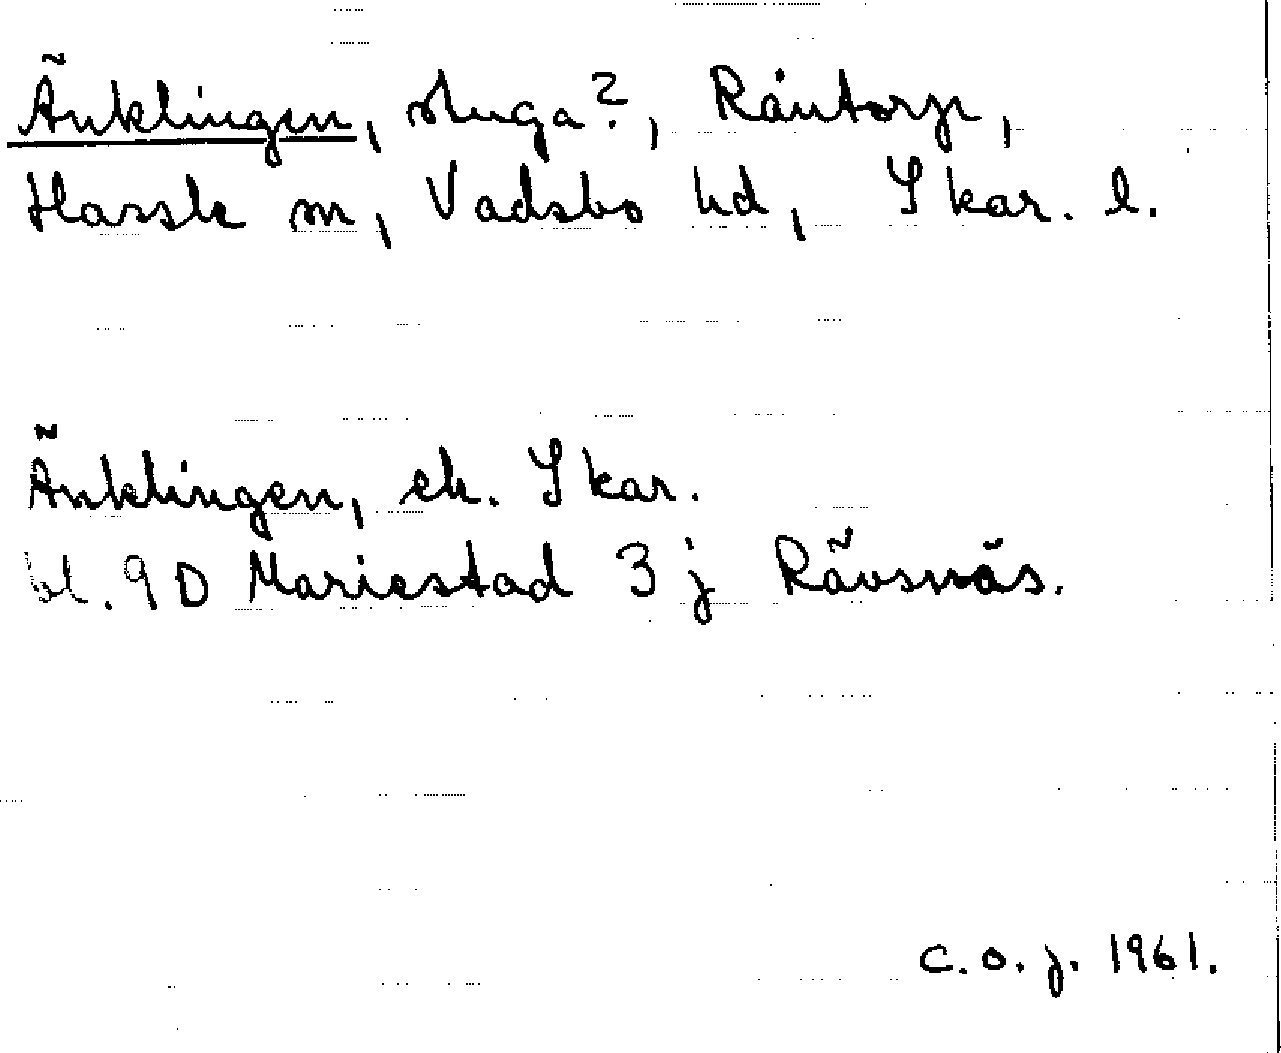 Änklingen, stuga?, Råntorp,
Hassle sn, Vadsbo hd, Skar. l.
Änklingen, ek. Skar.
bl. 9D Mariestad 3j Rävsnäs.
C.O.J. 1961.